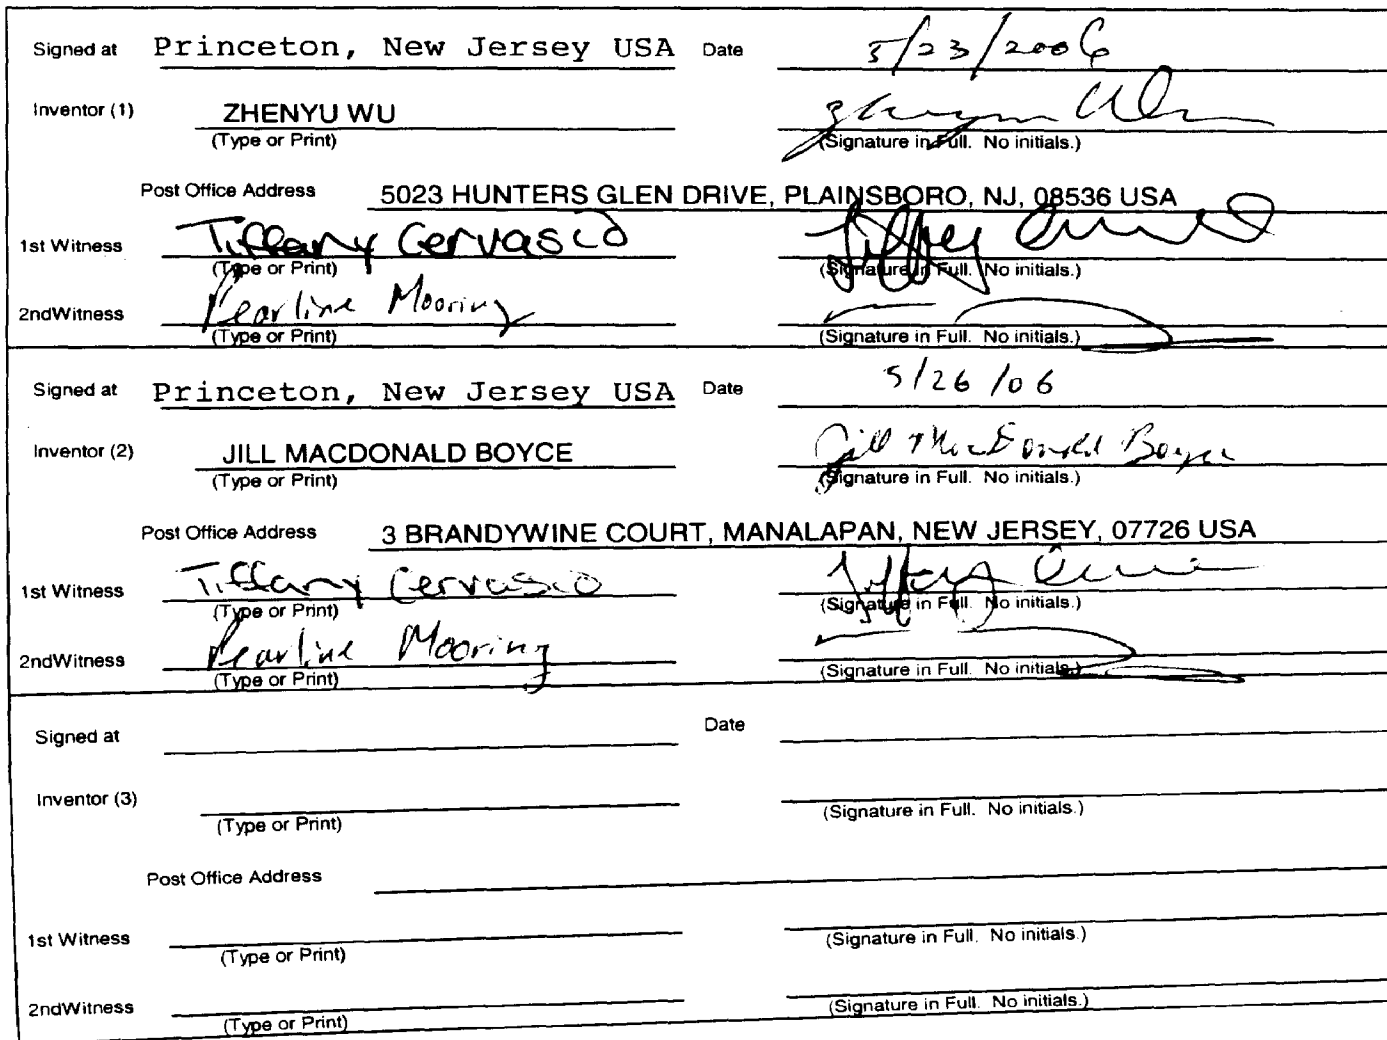 Signed at Princeton, New Jersey USA Date 5/23/2006
Inventor (1) ZHENYU WU Zhenyu Wu
(Type or Print) (Signature in Full. No initials.)
Post Office Address 5023 HUNTERS GLEN DRIVE, PLAINSBORO, NJ, 08536 USA
1st Witness Tiffany Gervasio
(Type or Print) (Signature in Full. No initials.)
2ndWitness Pearline Mooring
(Type or Print) (Signature in Full. No initials.)
Signed at Princeton, New Jersey USA Date 5/26/06
Inventor (2) JILL MACDONALD BOYCE Jill MacDonald Boyce
(Type or Print) (Signature in Full. No initials.)
Post Office Address 3 BRANDYWINE COURT, MANALAPAN, NEW JERSEY, 07726 USA
1st Witness Tiffany Gervasio
(Type or Print) (Signature in Full. No initials.)
2ndWitness Pearline Mooring
(Type or Print) (Signature in Full. No initials.)
Signed at Date
Inventor (3)
(Type or Print) (Signature in Full. No initials.)
Post Office Address
1st Witness
(Type or Print) (Signature in Full. No initials.)
2ndWitness
(Type or Print) (Signature in Full. No initials.)